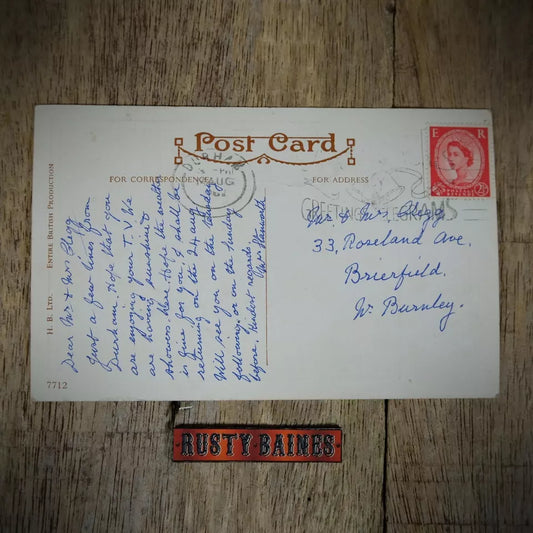 Post Card
FOR CORRESPONDENCE
FOR ADDRESS
H. B. LTD. ENTIRE BRITISH PRODUCTION
7712
DURHAM
AUG
GREETINGS TELEGRAMS
E R
2½
Dear Mr & Mrs Clegg
Just a few lines from
Durham. Hope that you
are enjoying your T.V. We
are having sunshine &
showers here. Hope the weather
is fine for you. I shall be
returning on the 24 aug
Will see you on the Monday
following, or on the Sunday
before. Kindest regards.
Mr. & Mrs. Clegg,
33, Roseland Ave.
Brierfield.
Nr. Burnley.
RUSTY BAINES